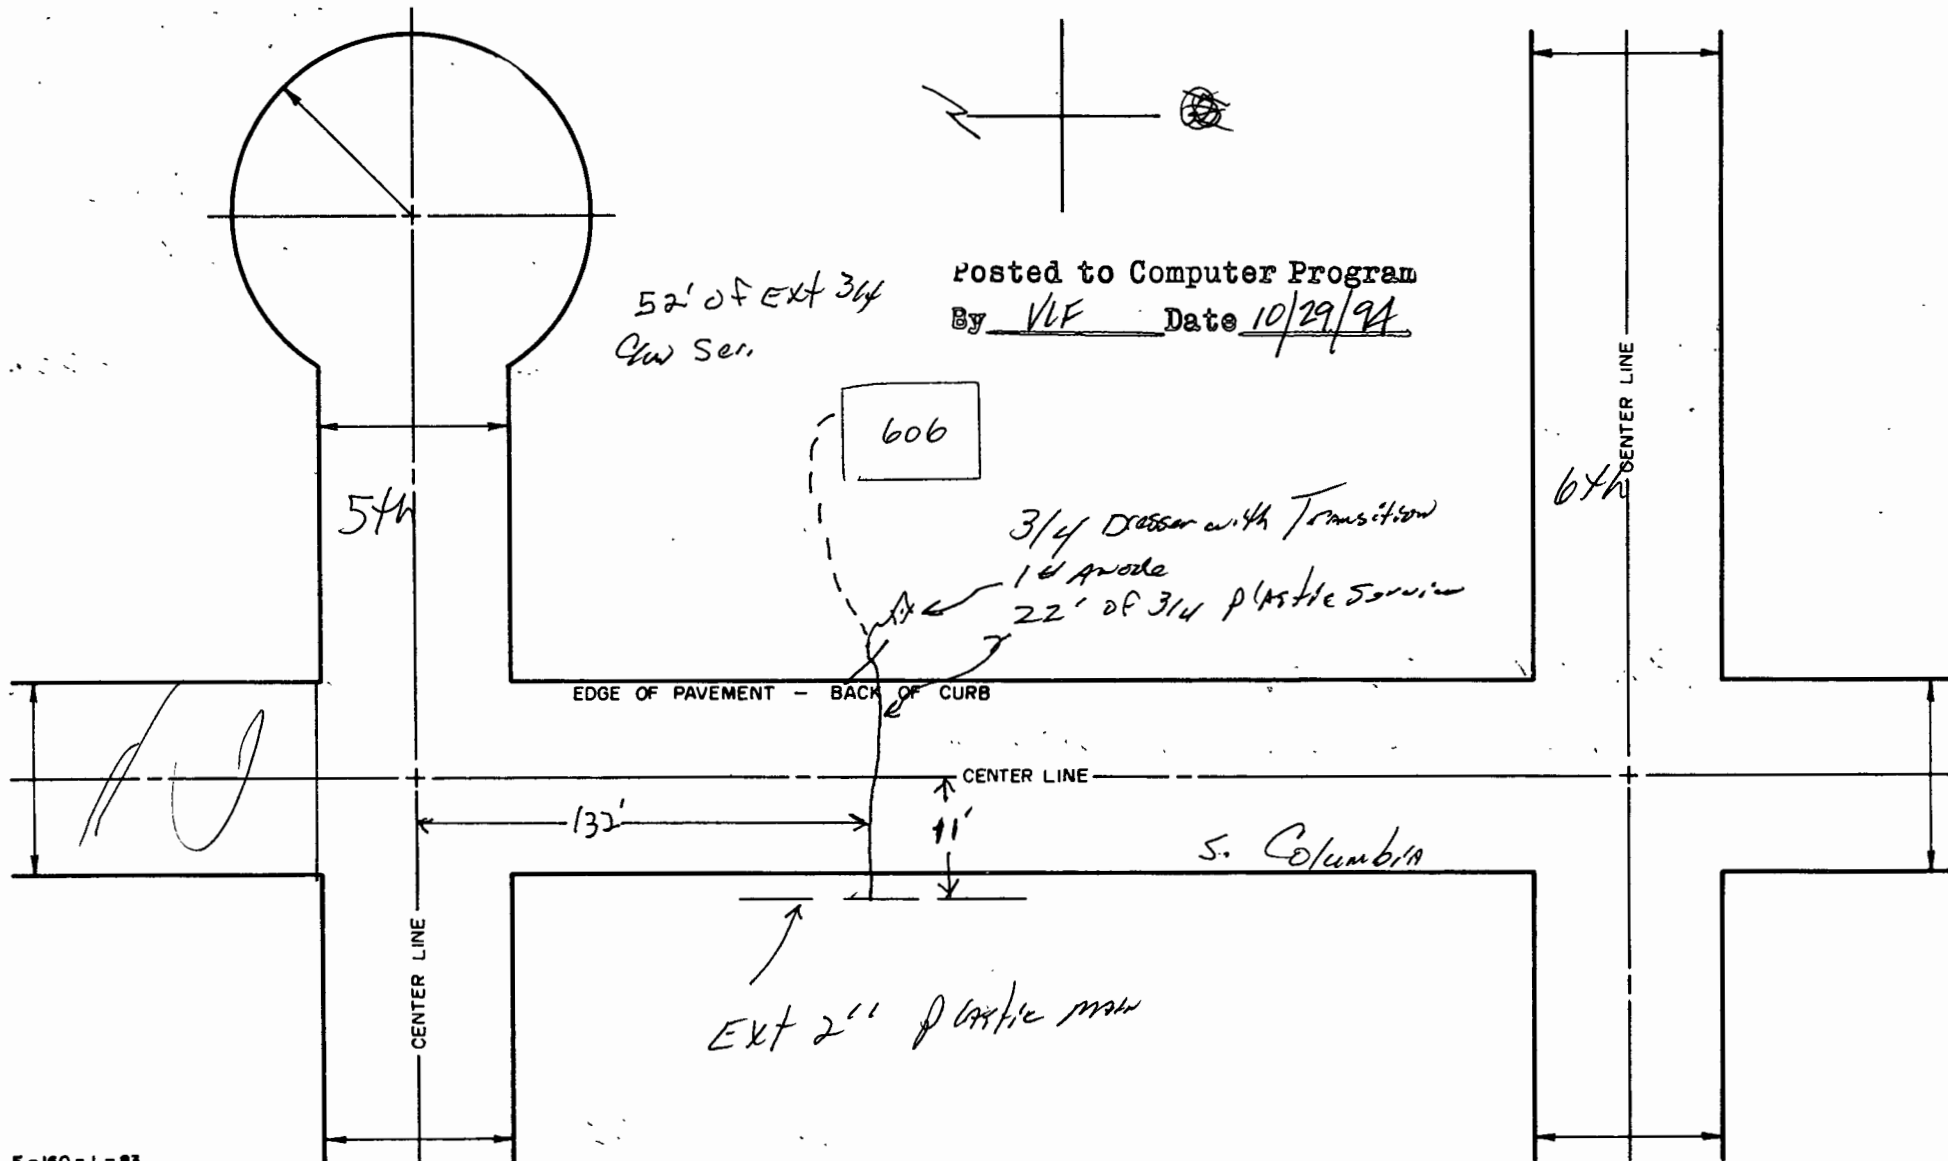 52' of Ext 3/4
C/w Ser.
Posted to Computer Program
By VLF Date 10/29/94
606
5th
6th
CENTER LINE
3/4 Dresser with Transition
1# Anode
22' of 3/4 plastic Service
EDGE OF PAVEMENT - BACK OF CURB
CENTER LINE
132'
11'
S. Columbia
CENTER LINE
Ext 2" plastic main